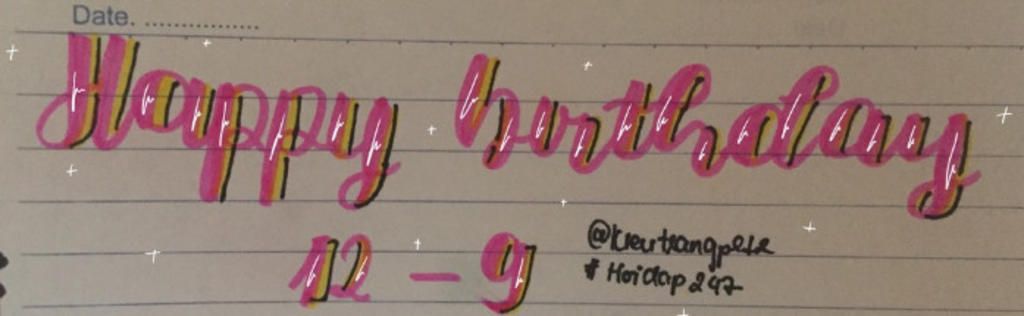 Date. ...............
Happy birthday
12 - 9
@kieutrangpete
# Hoidap247